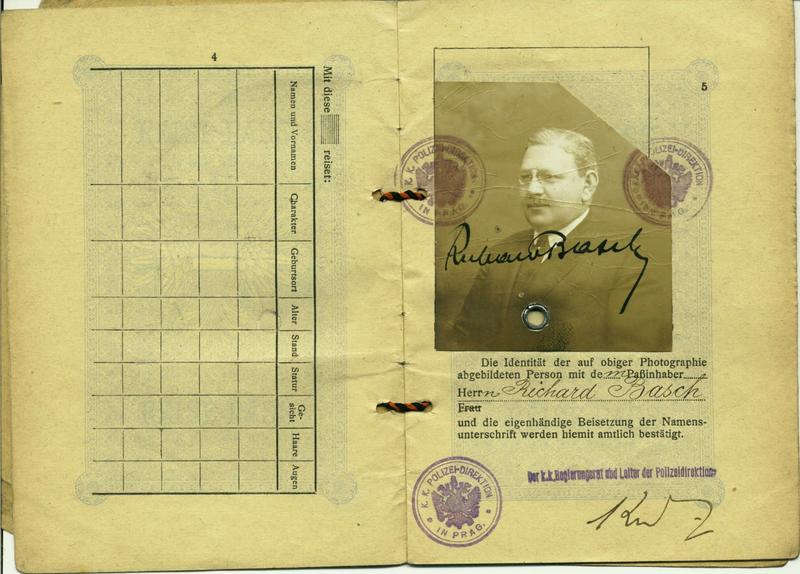 4
Mit diese reiset:
Namen und Vornamen
Charakter
Geburtsort
Alter
Stand
Statur
Ge-
sicht
Haare
Augen
5
K. K. POLIZEI-DIREKTION
IN PRAG.
K. K. POLIZEI-DIREKTION
IN PRAG.
Richard Basch
Die Identität der auf obiger Photographie
abgebildeten Person mit dem Paßinhaber
Herrn Richard Basch
Frau
und die eigenhändige Beisetzung der Namens-
unterschrift werden hiemit amtlich bestätigt.
Der k.k. Regierungsrat und Leiter der Polizeidirektion
K. K. POLIZEI-DIREKTION
IN PRAG.